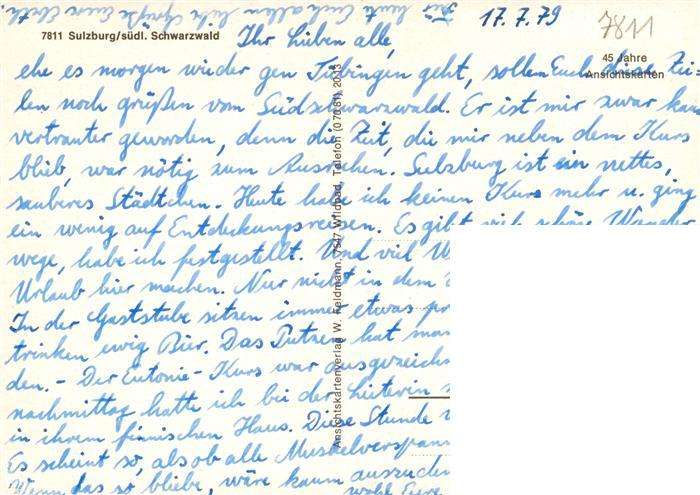 Für heute Euch allen liebe Grüße Eure Elsb.
17. 7. 79
7811
7811 Sulzburg/südl. Schwarzwald
45 Jahre
Ansichtskarten
Ihr lieben alle,
ehe es morgen wieder gen Tübingen geht, sollen Euch diese Zei-
len noch grüßen vom Südschwarzwald. Er ist mir zwar kaum
vertrauter geworden, denn die Zeit, die mir neben dem Kurs
blieb, war nötig zum Ausruhen. Sulzburg ist ein nettes,
sauberes Städtchen. Heute habe ich keinen Kurs mehr u. ging
ein wenig auf Entdeckungsreisen. Es gibt viele schöne Wander
wege, habe ich festgestellt. Und viel
Urlaub hier machen. Nur nicht in dem
In der Gaststube sitzen immer etwas
trinken ewig Bier. Das Putzen hat man
den. – Der Eutonie-Kurs war ausgezeich
nachmittag hatte ich bei der Leiterin
in ihrem finnischen Haus. Diese Stunde
Es scheint so, als ob alle Muskelverspann
Wenn das so bliebe, wäre kaum auszuden
wohl Eure
Ansichtskartenverlag W. Feldmann, 7547 Wildbad, Telefon (0 70 81) 20 13